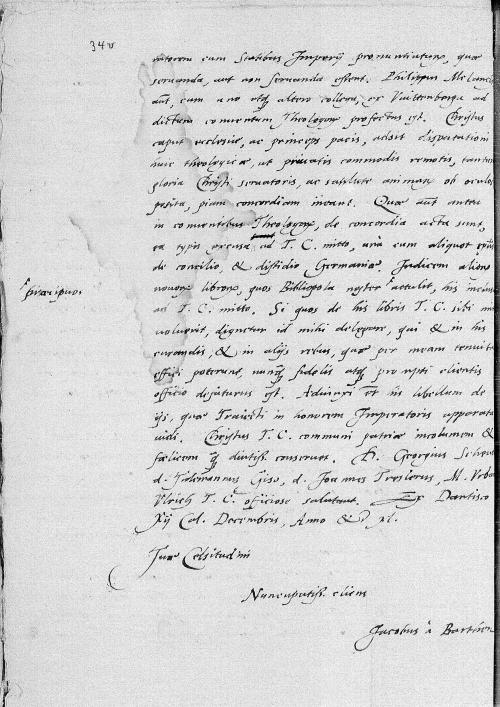 34v
cum Statibus Imperij pronuntientur, quae
servanda, aut non servanda essent. Philippus
aut, cum uno atque altero collega, ex Vuittenberga ad
dictum conventum Theologorum profectus est. Christus
caput ecclesiae, ac princeps pacis, adsit disputationi
huic theologicae, ut privatis commodis remotis, tantum
gloria Christi servatoris, ac salute animarum ob oculos
posita, piam concordiam ineant. Quae aut antea
in conventibus Theologorum, de concordia acta sunt,
ea typis excusa ad T. C. mitto, una cum aliquot
de concilio, & dissidio Germaniae. Indicem
novorum librorum, quos Bibliopola noster attulit, his
praecipuos
ad T. C. mitto. Si quos de his libris T. C. sibi
voluerit, dignetur id mihi delegare, qui & in his
curandis, & in alijs rebus, quae per meam
effici poterunt, fidelis atque prompti clientis
officio defuturus est. Adiunxi et his libellum de
ijs, quae Traiecti in honorem Imperatoris
Christus T. C. communi patriae incolumem &
foelicem diutiss. conservet. D. Georgius
d. Tidemannus Gise, d. Joannes Treslerus, M.
Ulrich T. C. officiose salutant. Dantisco
xij Cal. Decembris, Anno &
Tuae Celsitudini
Nuncupatiss. cliens
Jacobus à